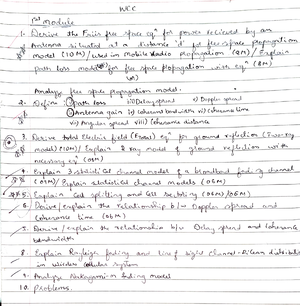 WCC
1st Module
1. Derive the Friis free space eqn for power received by an
Antenna situated at a distance 'd' for free space propagation
model (10M) / used in mobile radio propagation (8M) / Explain
path loss model for free space propagation with eqn (8M)
or
Analyse free space propagation model.
2. Define: i) Path loss ii) Delay spread v) Doppler spread
Antenna gain iv) coherent bandwidth vi) coherence time
vii) Angular spread viii) coherence distance
3. Derive total Electric field (ETotal) eqn for ground reflection (Two ray
model) (10M) / Explain 2 ray model of ground reflection with
necessary eqn (05M)
4. Explain statistical channel model of a broadband fading channel
(05M) / Explain statistical channel models (06M)
5. Explain Cell splitting and Cell sectoring (05M/06M)
6. Derive/explain the relationship b/w Doppler spread and
Coherence time (06M)
7. Derive/explain the relationship b/w Delay spread and Coherence
bandwidth
8. Explain Rayleigh fading and Line of sight channel - Ricean distribution
in wireless cellular system
9. Analyse Nakagami-m fading model
10. Problems.